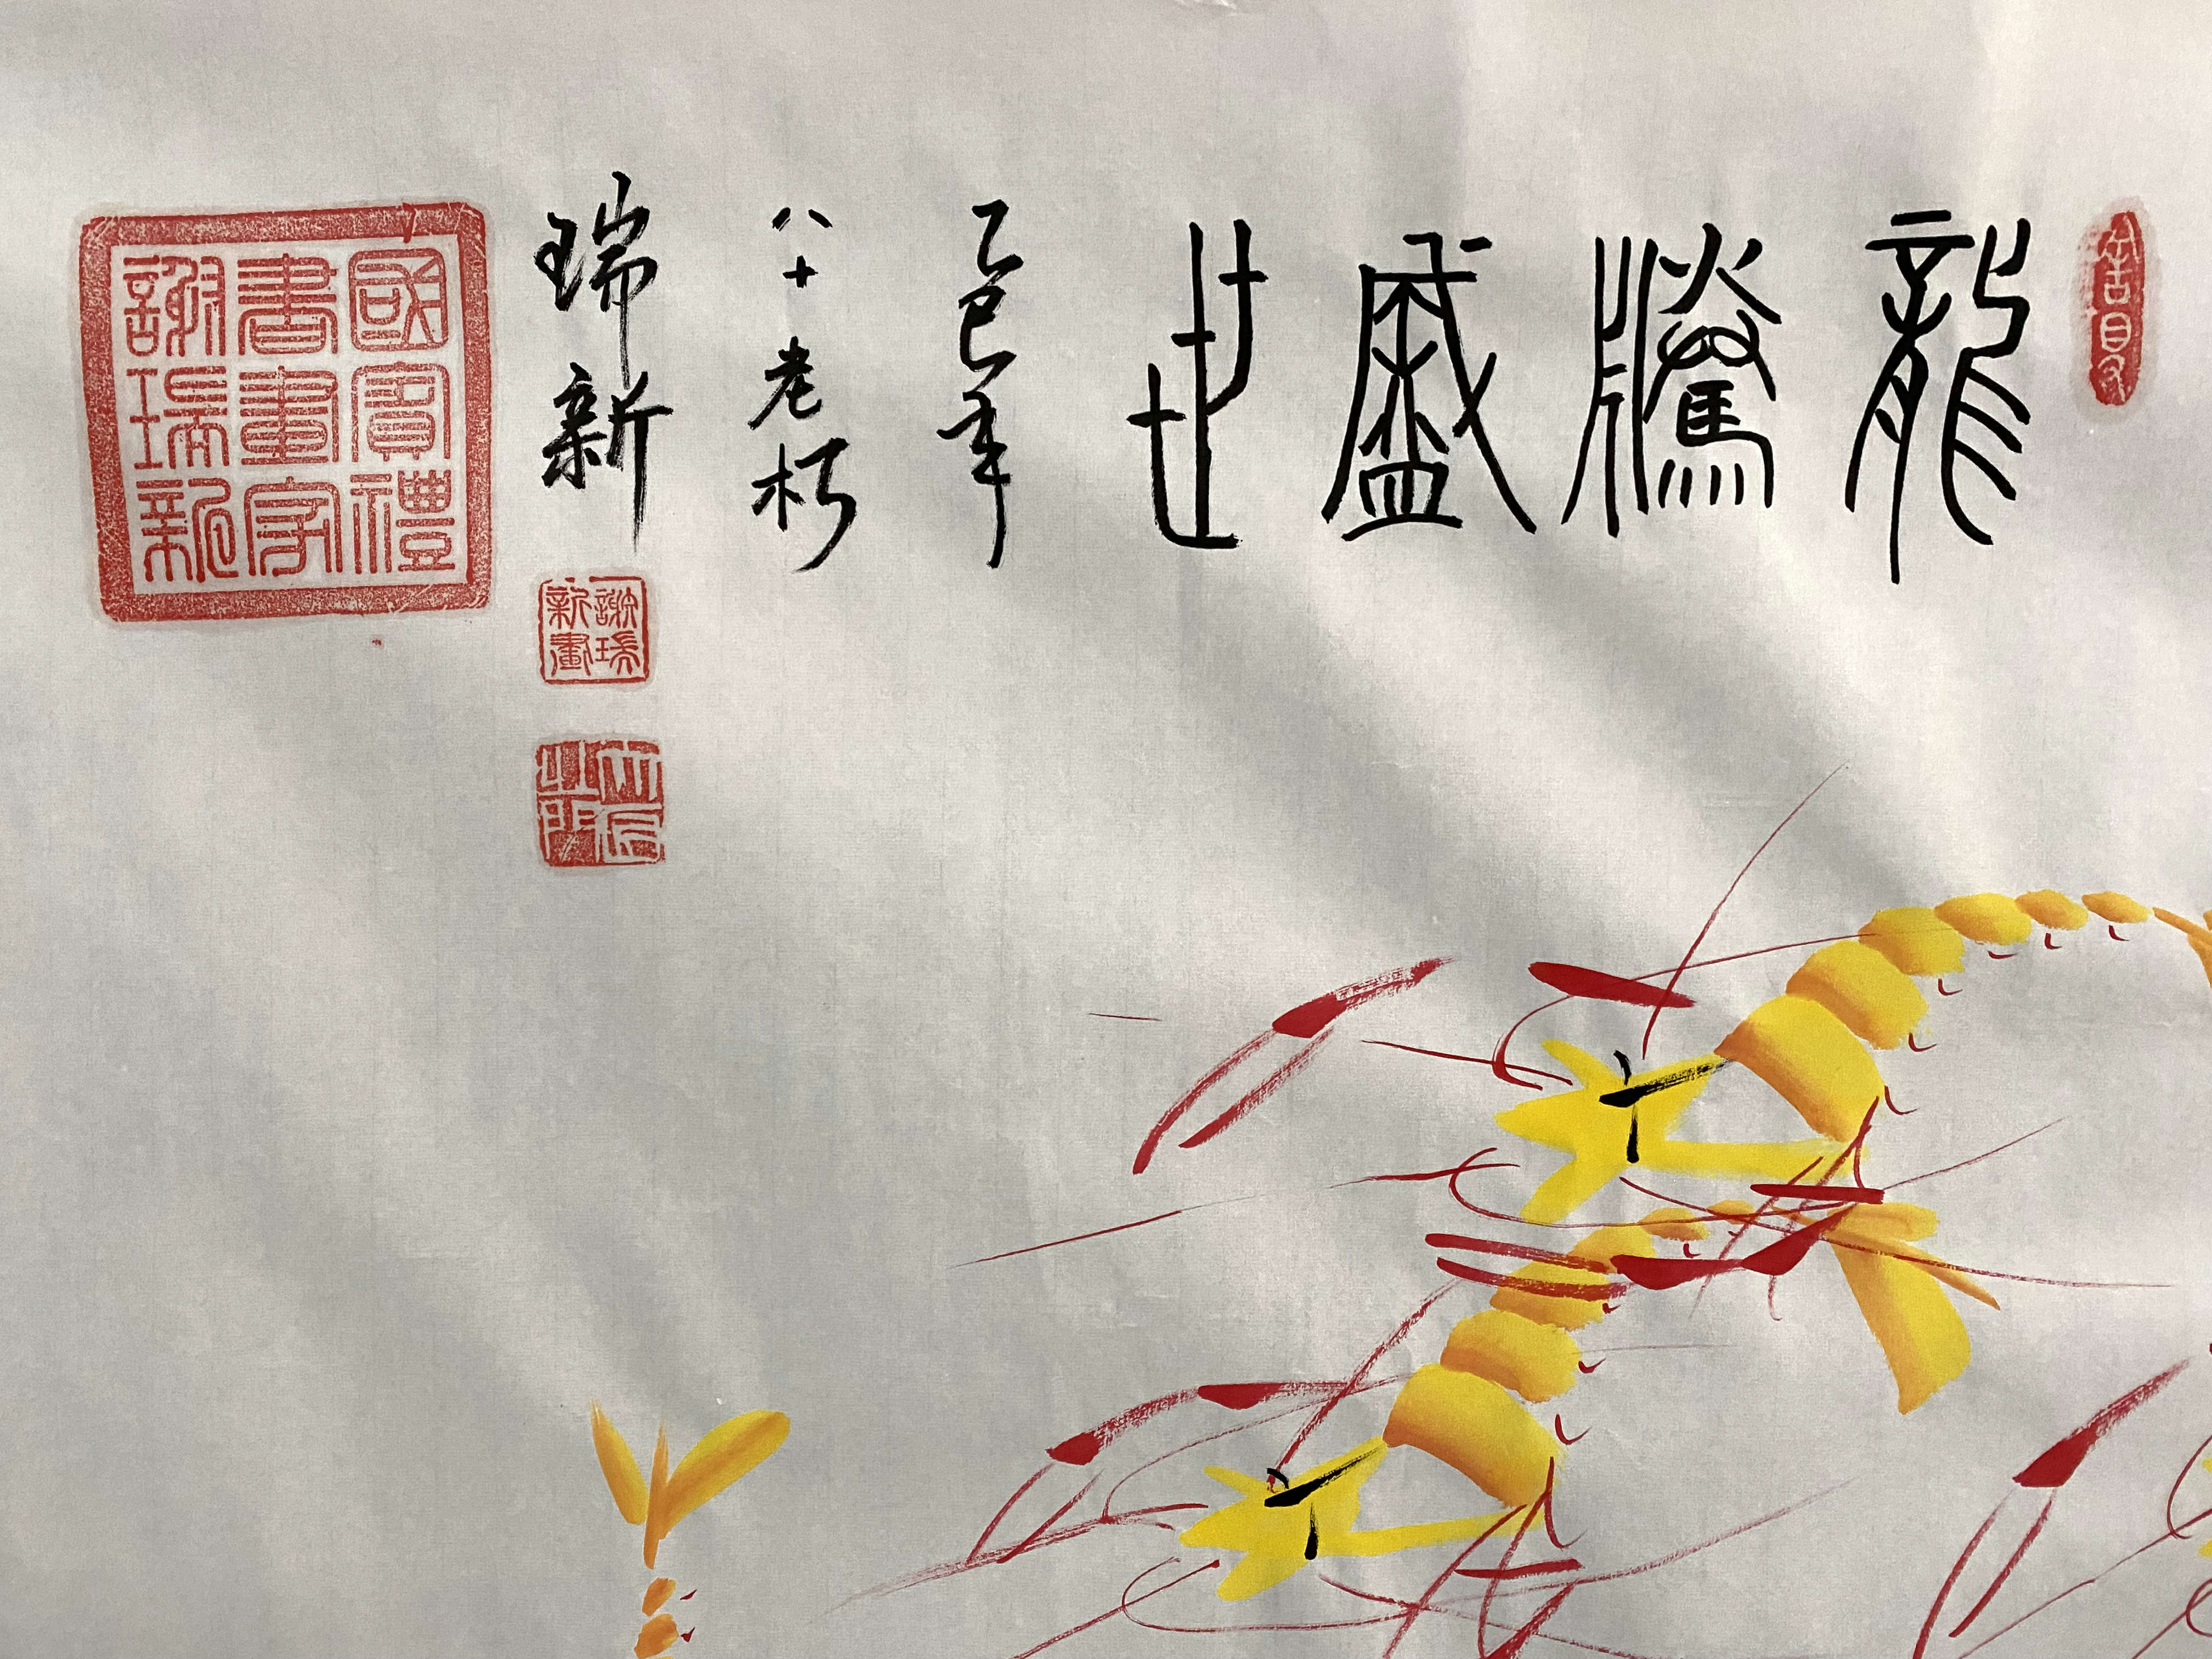 龍騰盛世
乙巳年
八十老朽
瑞新
國賓禮
書畫字
謝瑞新
謝瑞
新畫